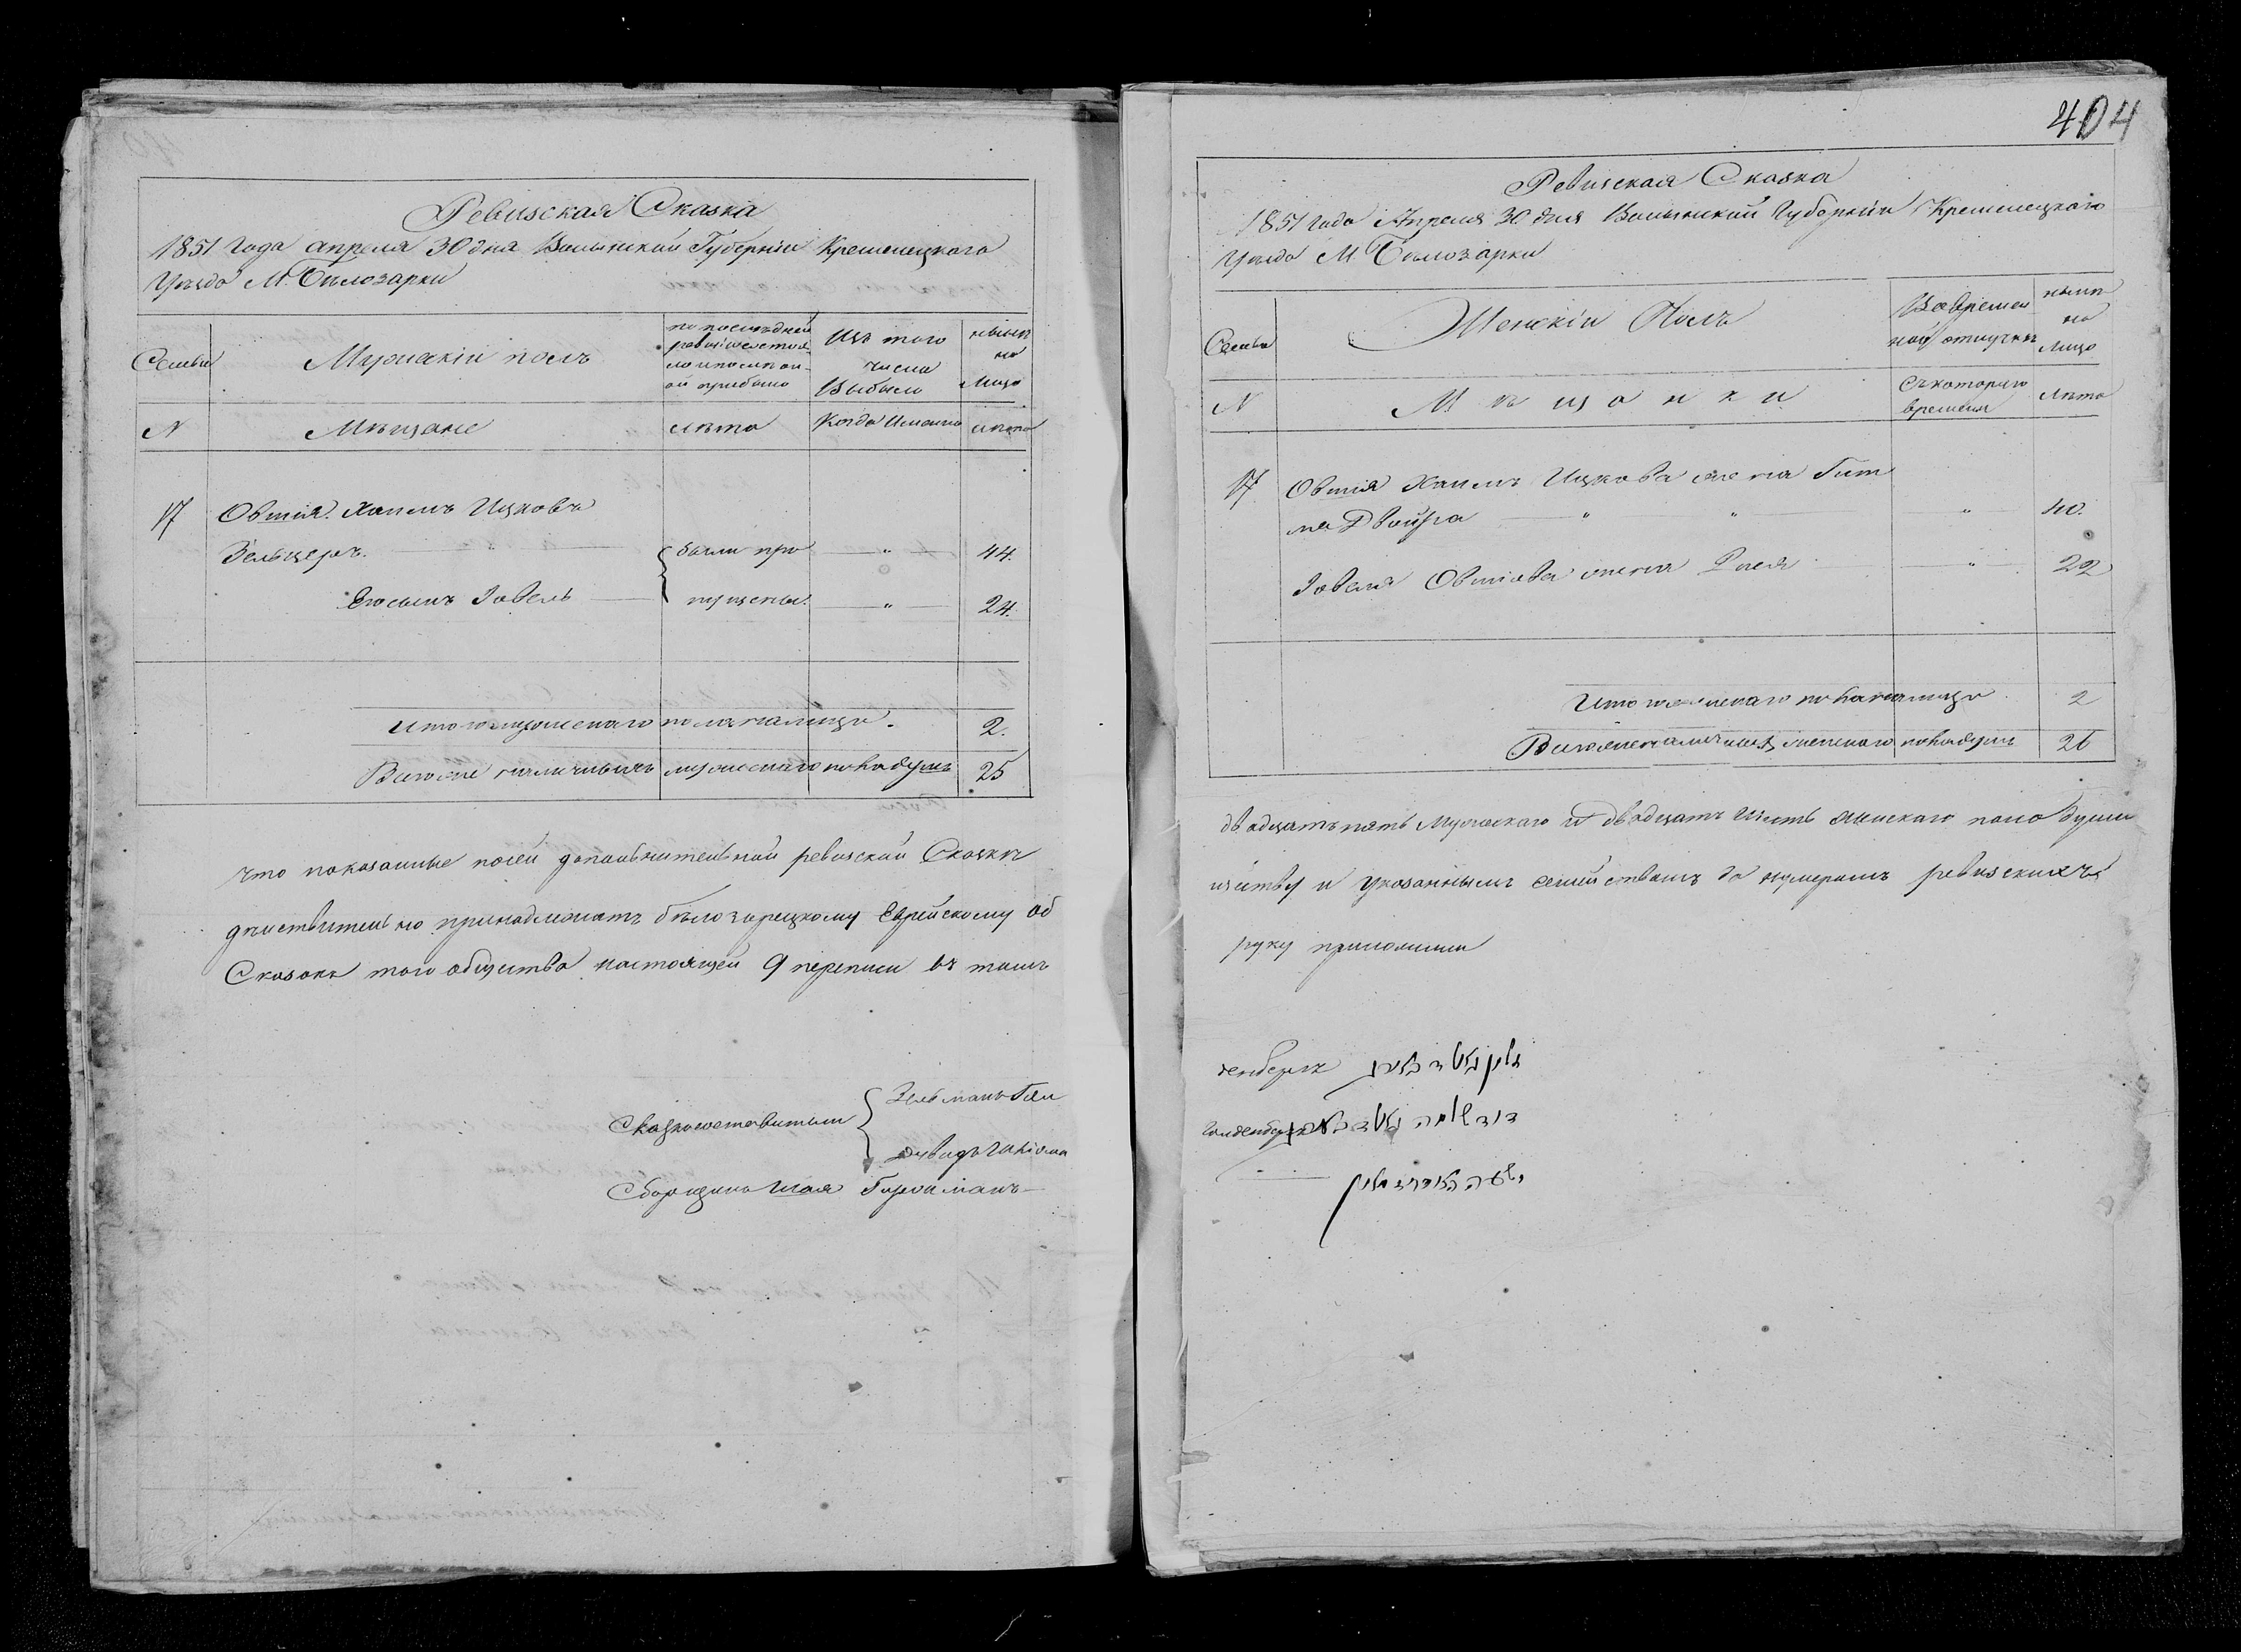 Ревизская Сказка
1851 Года апреля 30 дня Волынской Губерніи Кременецкого
Уезда М. Билозарки
Семьи
Мужескій полъ
по последней
ревизіи состоя-
ло и после он-
ой прибыло
Изъ того
числа
Выбыло
нынѣ
на
Лицо
N
Мѣщане
лѣта
Когда Именно
лѣта
17 Овшія Хаимъ Ицковъ
Зельцеръ. были про " 44.
Его сынъ Іовель пущены. " 24.
Итого мужескаго пола налицо. 2.
Всего же наличныхъ мужескаго пола душъ 25
что показанные посей дополнительной ревизской Сказкѣ
действительно принадлежатъ белозарецкому Еврейскому об
Сказокъ того общества настоящей 9 переписи въ томъ
Сказкосоставители
Зельманъ Гол
Давидъ
Сборщикъ Шая
404
Ревизская Сказка
1851 года Апреля 30 дня Волынской Губерніи Кременецкого
Уезда М. Билозарки
Семьи
Женскій Полъ
Во времен
ной отлучкѣ
нынѣ
на
Лицо
N
М ѣ щ а н к и
Съ которого
времени
Лѣта
17 Овшія Хаимъ Ицкова жена Гит
ля Двойра " " " 40.
Іовеля Овшіева жена Рися " 22
Итого женскаго пола налицо 2
Всего же наличныхъ женскаго пола душъ 26
двадцать пять Мужескаго и двадцать шесть женскаго пола души
ществу и указаннымъ семействамъ за нумерамъ ревизскихъ
руку приложили
денбергъ
голденбергъ דוד שלמה
ישעיה